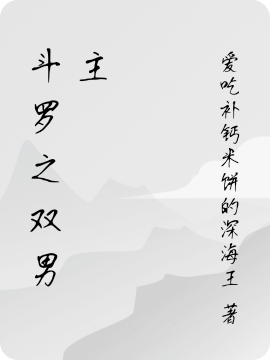 斗罗之双男
主
爱吃补钙米饼的深海王 著